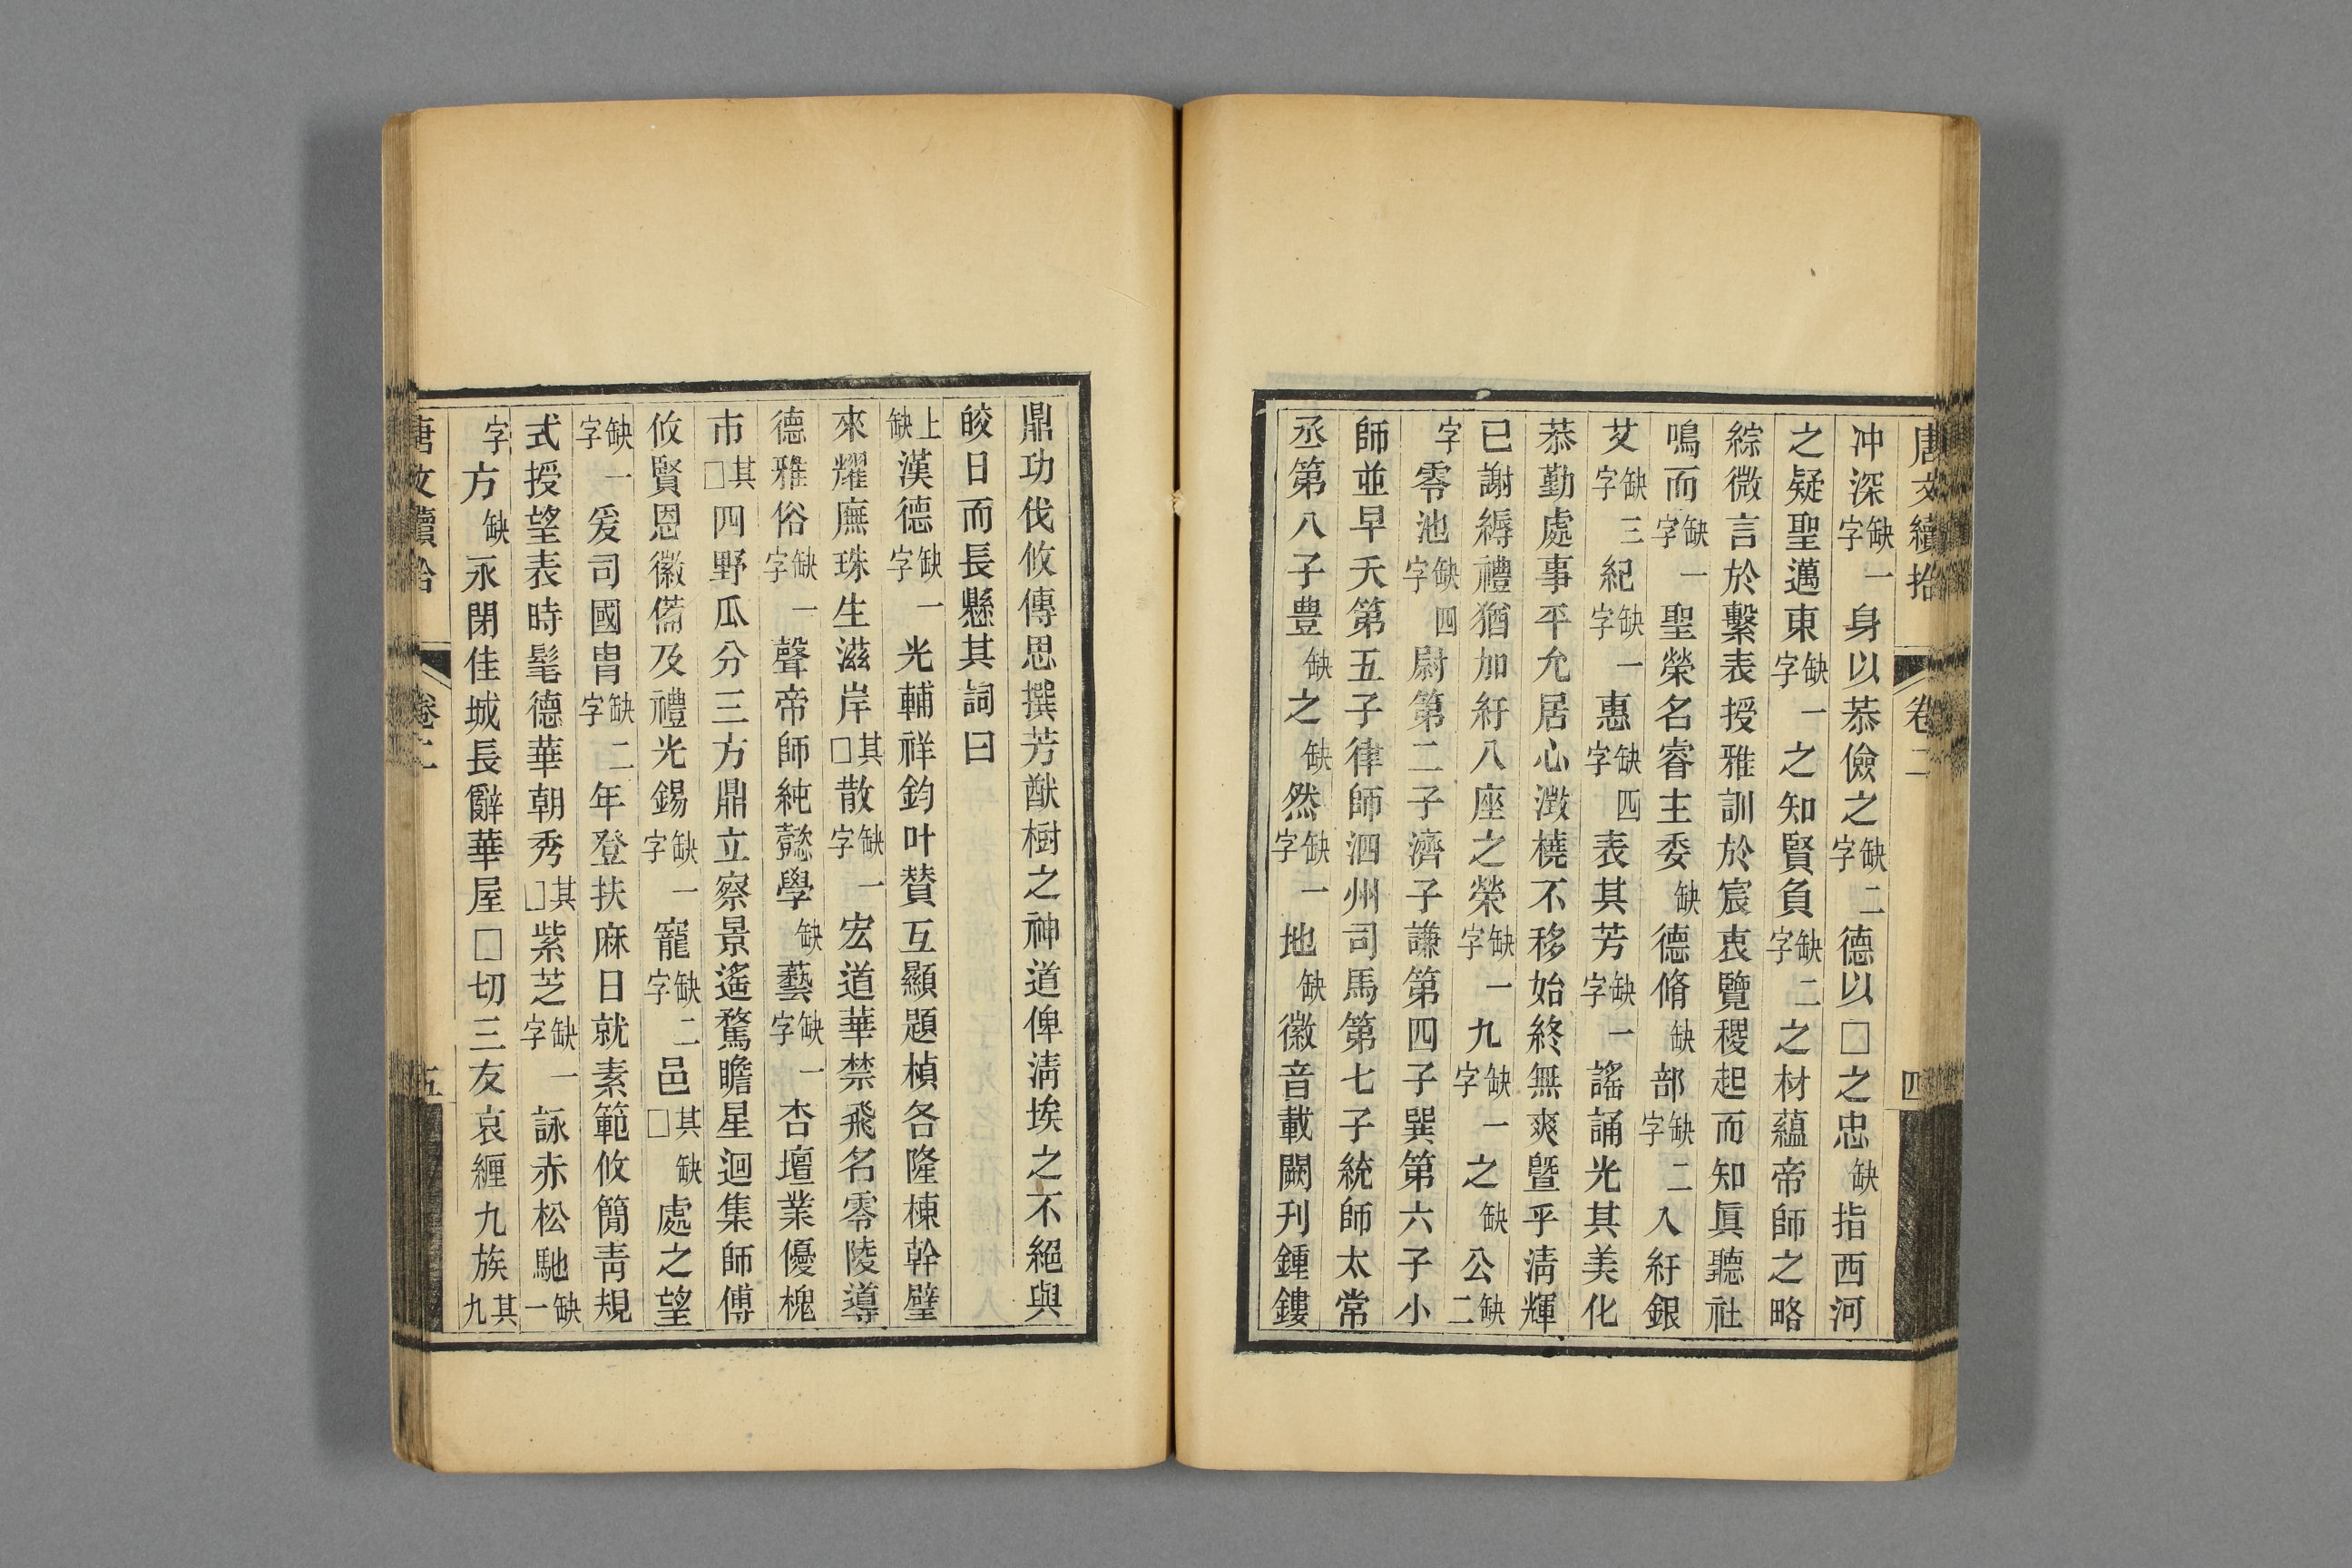 唐文續拾 卷二 四
冲深缺一字身以恭儉之缺二字德以□之忠缺指西河
之疑聖邁東缺一字之知賢負缺二字之材蘊帝師之略
綜微言於繫表授雅訓於宸衷覽稷起而知眞聽社
鳴而缺一字聖榮名睿主委缺德脩缺部缺二字入紆銀
艾缺三字紀缺一字惠缺四字表其芳缺一字謠誦光其美化
恭勤處事平允居心澂橈不移始終無爽曁乎淸輝
已謝縟禮猶加紆八座之榮缺一字九缺一字之缺公缺二
字零池缺四字尉第二子濟子謙第四子巽第六子小
師並早夭第五子律師泗州司馬第七子統師太常
丞第八子豊缺之缺然缺一字地缺徽音載闕刋鍾鏤
鼎功伐攸傳思撰芳猷樹之神道俾淸埃之不絕與
皎日而長懸其詞曰
上缺漢德缺一字光輔祥鈞叶贊互顯題楨各隆棟幹璧
來耀廡珠生滋岸其□散缺一字宏道華禁飛名零陵導
德雅俗缺一字聲帝師純懿學缺藝缺一字杏壇業優槐
市其□四野瓜分三方鼎立察景遙騖瞻星迴集師傅
攸賢恩徽僃及禮光錫缺一字寵缺二字邑其□缺處之望
缺一字爰司國胄缺二字年登扶麻日就素範攸簡靑規
式授望表時髦德華朝秀其□紫芝缺一字詠赤松馳缺一
字方缺永閉佳城長辭華屋□切三友哀纒九族其九
唐文續拾 卷二 五